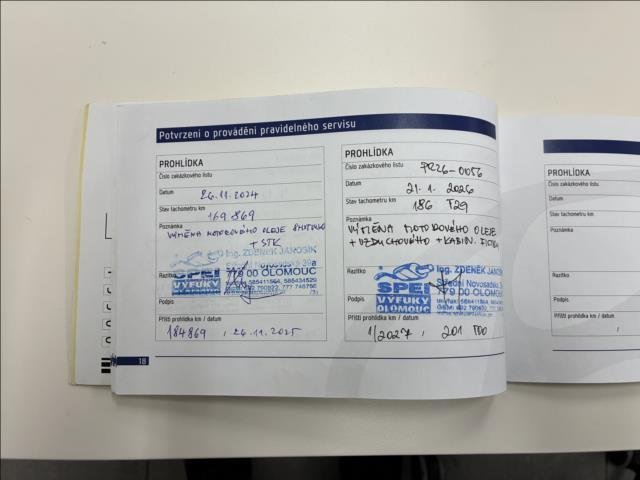 Potvrzení o provádění pravidelného servisu
PROHLÍDKA
Číslo zakázkového listu
Datum
26.11.2024
Stav tachometru km
169 869
Poznámka
VÝMĚNA MOTOROVÉHO OLEJE
+ STK
Razítko
Ing. ZDENĚK JANOŠÍK
779 00 OLOMOUC
SPEI
VÝFUKY
OLOMOUC
Podpis
Příští prohlídka km / datum
184869 , 26.11.2025
PROHLÍDKA
Číslo zakázkového listu
PR26-0056
Datum
21.1. 2026
Stav tachometru km
186 729
Poznámka
VÝMĚNA MOTOROVÉHO OLEJE
+ VZDUCHOVÉHO + KABIN. FILTRU
Razítko
Ing. ZDENĚK JANOŠÍK
Střední Novosadská
779 00 OLOMOUC
SPEI
VÝFUKY
OLOMOUC
Podpis
Příští prohlídka km / datum
1/2027 , 201 700
18
PROHLÍDKA
Číslo zakázkového listu
Datum
Stav tachometru km
Poznámka
Razítko
Podpis
Příští prohlídka km / datum